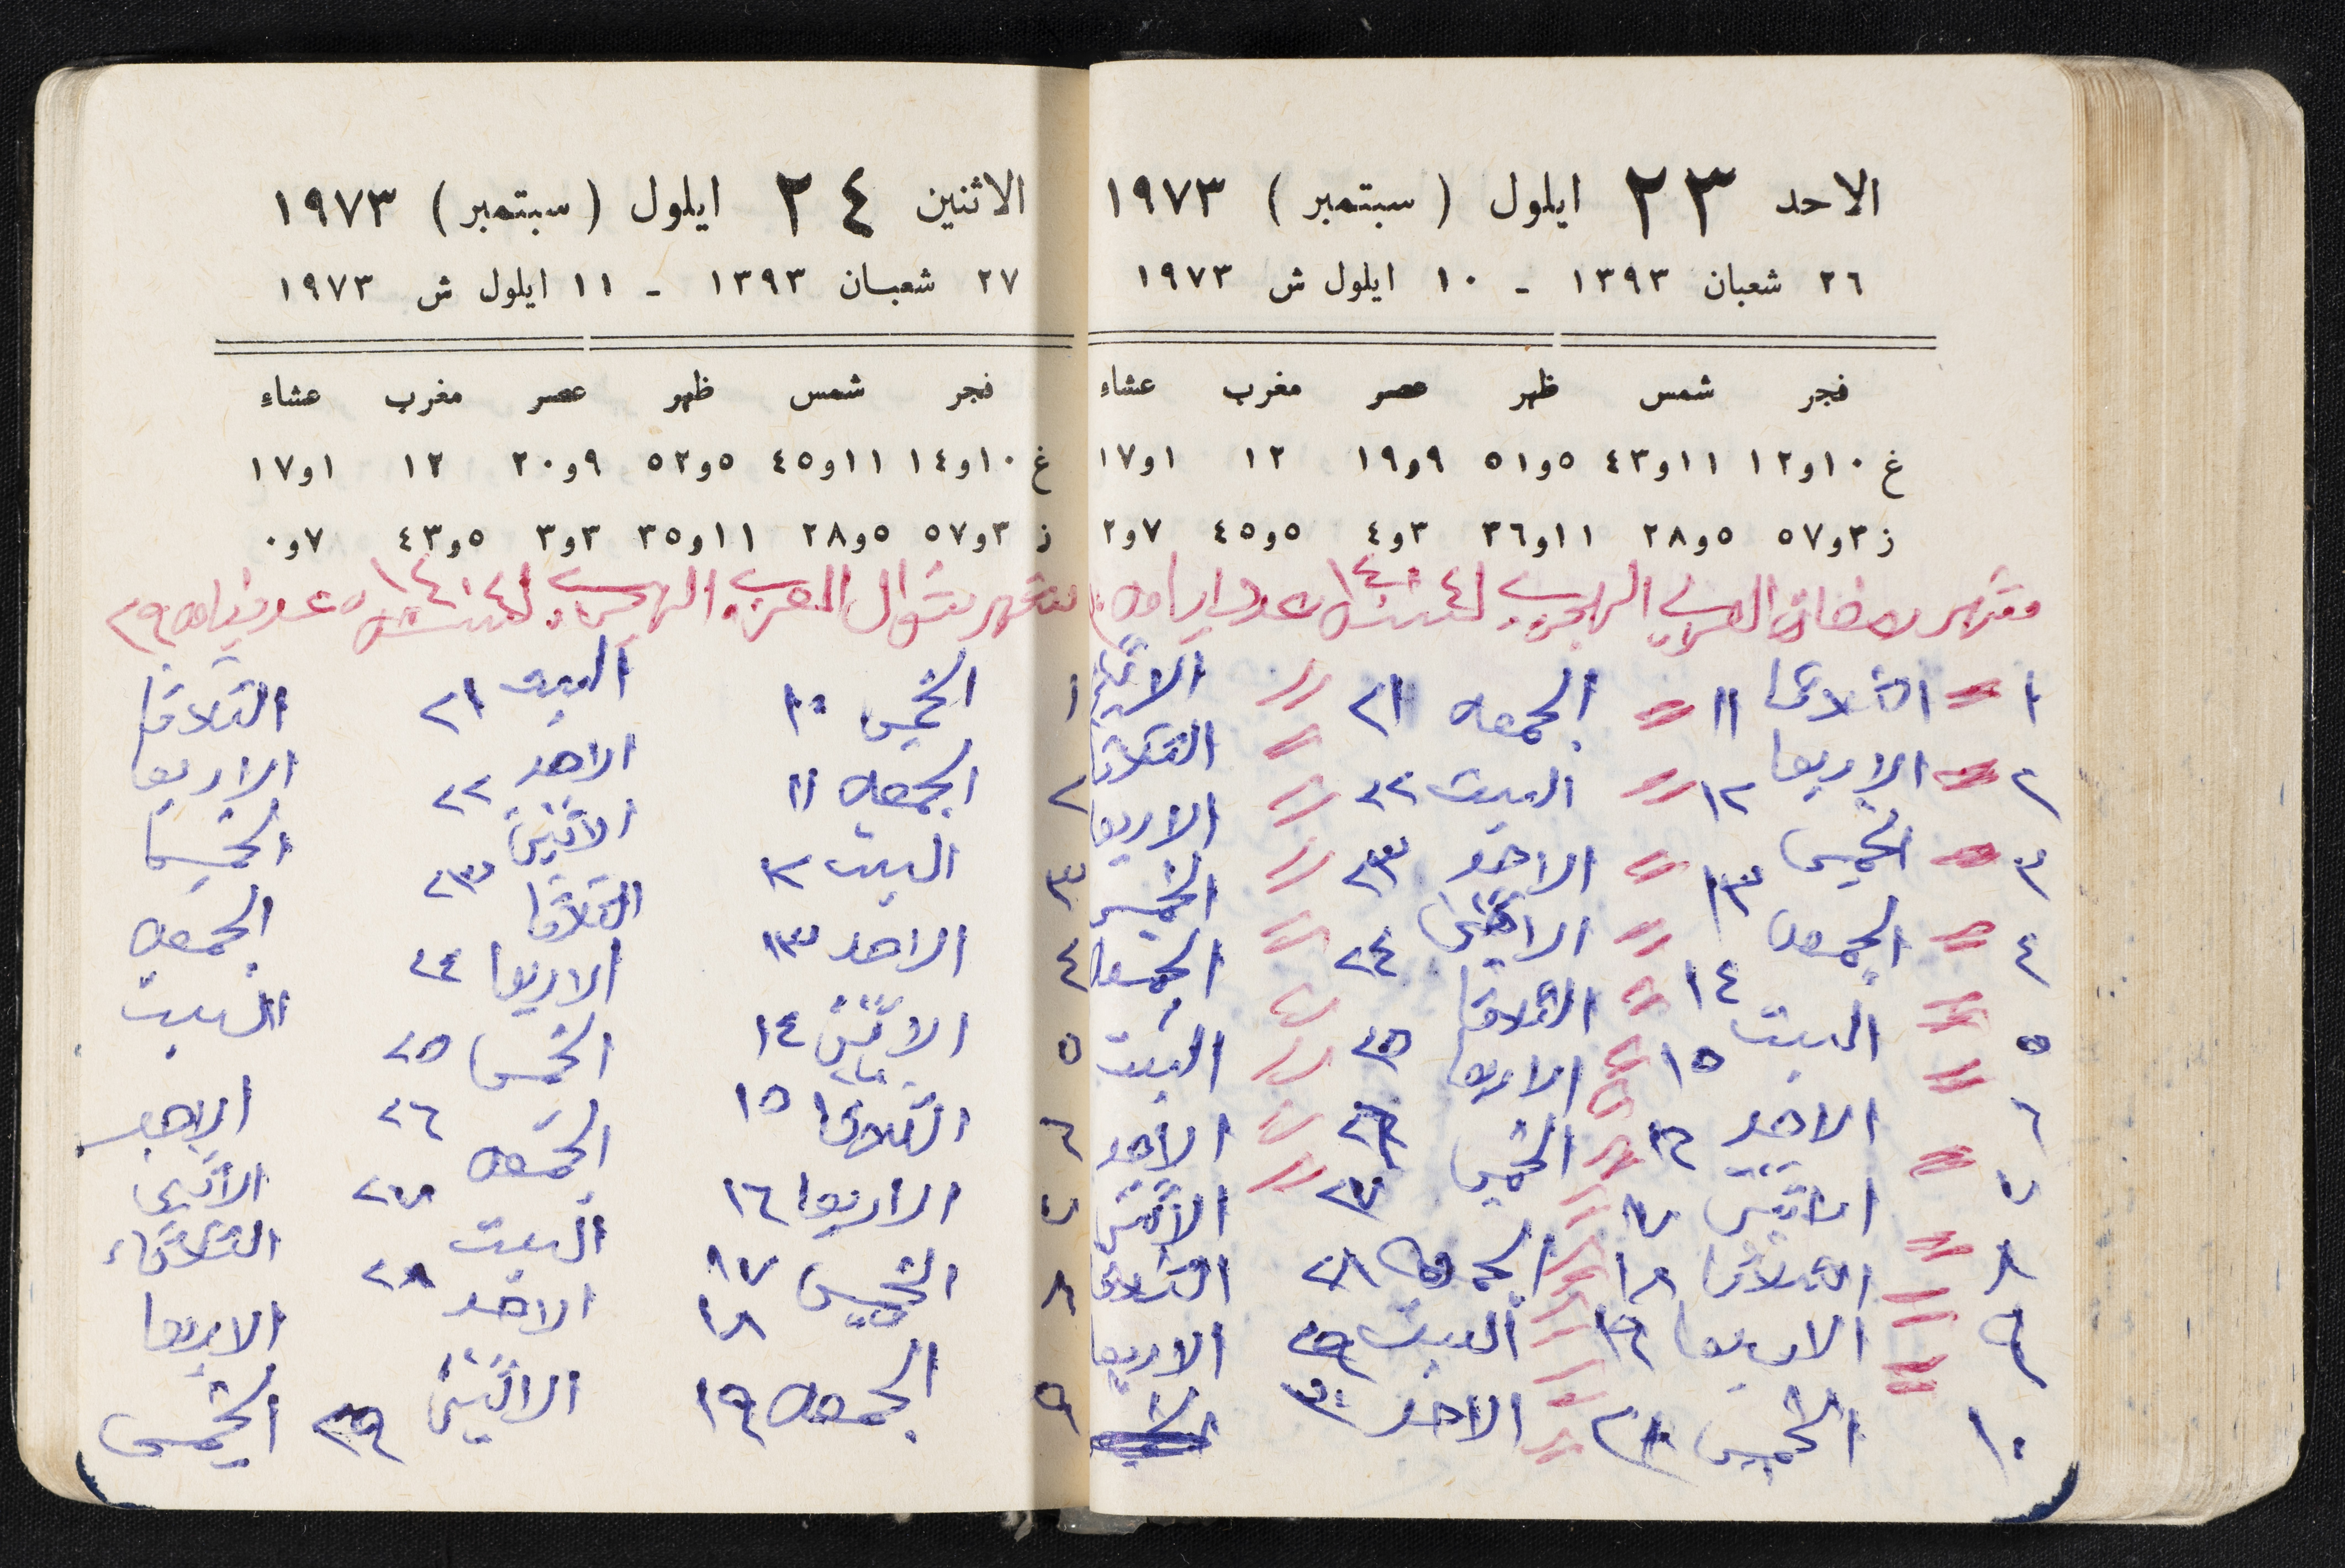 الاحد ٢٣ ايلول ( سبتمبر ) ١٩٧٣
٢٦ شعبان ١٣٩٣ - ١٠ ايلول ش ١٩٧٣
فجر شمس ظهر عصر مغرب عشاء
غ ١٠و١٢ ١١و٤٣ ٥و٥١ ٩و١٩ ١٢ ١و١٧
ز ٣و٥٧ ٥و٢٨ ١١و٣٦ ٣و٤ ٥و٤٥ ٧و٢
شهر رمضان العربي الهجري لسنة ١٤٠٤ عدد ايامه
١ = الثلاثا ١١ = الجمعه ٢١ = الاثنين
٢ = الاربعا ١٢ = السبت ٢٢ = الثلاثا
٣ = الخميس ١٣ = الاحد ٢٣ = الاربعا
٤ = الجمعه ١٤ = الاثنين ٢٤ = الخميس
٥ = السبت ١٥ = الثلاثا ٢٥ = الجمعه
٦ = الاحد ١٦ = الاربعا ٢٦ = السبت
٧ = الاثنين ١٧ = الخميس ٢٧ = الاحد
٨ = الثلاثا ١٨ = الجمعه ٢٨ = الاثنين
٩ = الاربعا ١٩ = السبت ٢٩ الثلاثا
١٠ = الخميس ٢٠ = الاحد ٣٠ الاربعا
الاثنين ٢٤ ايلول ( سبتمبر ) ١٩٧٣
٢٧ شعبان ١٣٩٣ - ١١ ايلول ش ١٩٧٣
فجر شمس ظهر عصر مغرب عشاء
غ ١٠و١٤ ١١و٤٥ ٥و٥٢ ٩و٢٠ ١٢ ١و١٧
ز ٣و٥٧ ٥و٢٨ ١١و٣٥ ٣و٣ ٥و٤٣ ٧و٠
شهر شوال العربي الهجري لسنة ١٤٠٤ عدد ايامه ٢٩
١ الخميس ١٠ السبت ٢١ الثلاثا
٢ الجمعه ١١ الاحد ٢٢ الاربعا
٣ السبت ١٢ الاثنين ٢٣ الخميس
٤ الاحد ١٣ الثلاثا ٢٤ الجمعه
٥ الاثنين ١٤ الاربعا ٢٥ السبت
٦ الثلاثا ١٥ الخميس ٢٦ الاحد
٧ الاربعا ١٦ الجمعه ٢٧ الاثنين
٨ الخميس ١٧ السبت ٢٨ الثلاثاء
١٨ الاحد الاربعا
٩ الجمعه ١٩ الاثنين ٢٩ الخميس